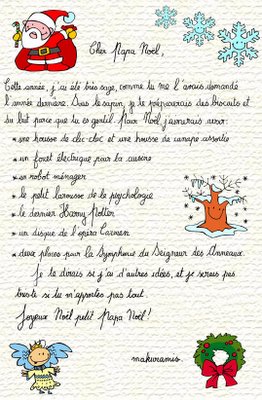 Cher Papa Noël,
Cette année, j'ai été très sage, comme tu me l'avais demandé
l'année dernière. Sous le sapin, je te préparerais des biscuits et
du lait parce que tu es gentil. Pour Noël j'aimerais avoir :
* une housse de clic-clac et une housse de canapé assortie
* un foret électrique pour la cuisine
* un robot ménager
* le petit larousse de la psychologie
* le dernier Harry Potter
* un disque de l'opéra Carmen
* deux places pour la Symphonie du Seigneur des Anneaux.
Je te dirais si j'ai d'autres idées, et je serais pas
triste si tu m'apportes pas tout.
Joyeux Noël petit Papa Noël !
makuramis